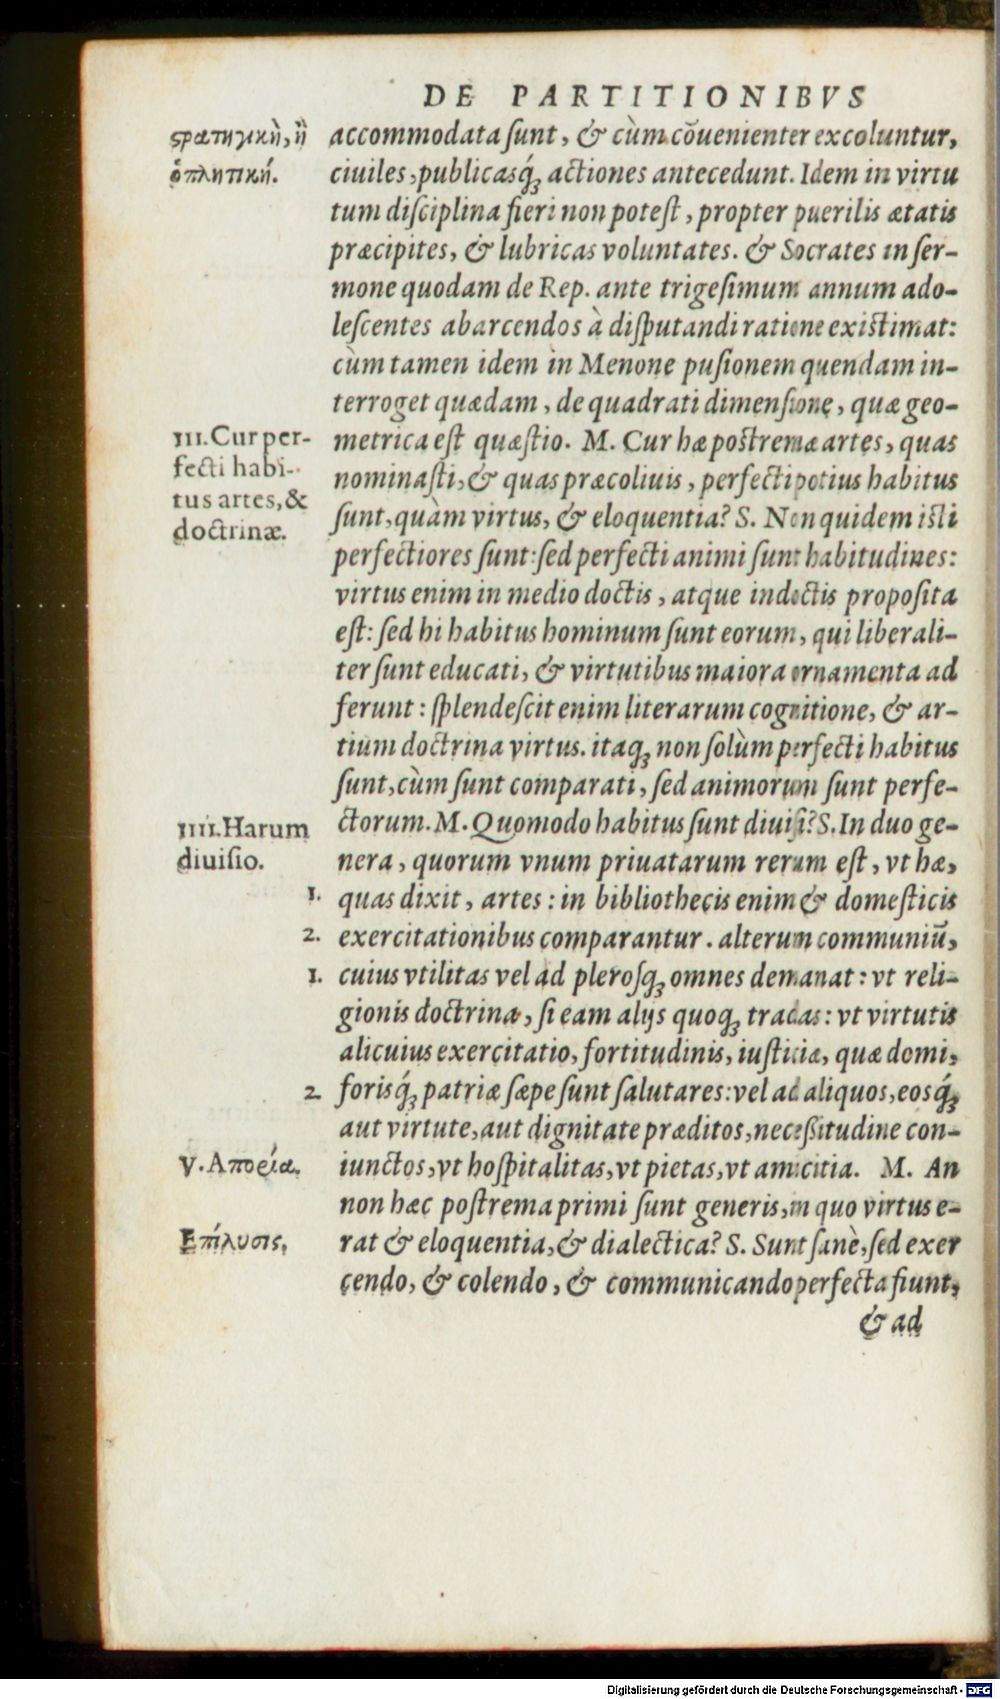 DE PARTITIONIBVS
ϛρατηγικὴ, ἢ
ὁπλητικὴ.
accommodata ſunt, & cùm cōuenienter excoluntur,
ciuiles, publicasq́ꝫ actiones antecedunt. Idem in virtu
tum diſciplina fieri non poteſt, propter puerilis ætatis
præcipites, & lubricas voluntates. & Socrates in ſer-
mone quodam de Rep. ante trigeſimum annum ado-
leſcentes abarcendos à diſputandi ratione exiſtimat:
cùm tamen idem in Menone puſionem quendam in-
terroget quædam, de quadrati dimenſione, quæ geo-
III. Cur per-
fecti habi-
tus artes, &
doctrinæ.
metrica eſt quæſtio. M. Cur hæ poſtremæ artes, quas
nominaſti, & quas præcoliuis, perfecti potius habitus
ſunt, quàm virtus, & eloquentia? S. Non quidem iſti
perfectiores ſunt: ſed perfecti animi ſunt habitudines:
virtus enim in medio doctis, atque indoctis propoſita
eſt: ſed hi habitus hominum ſunt eorum, qui liberali-
ter ſunt educati, & virtutibus maiora ornamenta ad
ferunt: ſplendeſcit enim literarum cognitione, & ar-
tium doctrina virtus. itaqꝫ non ſolùm perfecti habitus
ſunt, cùm ſunt comparati, ſed animorum ſunt perfe-
IIII. Harum
diuiſio.
ctorum. M. Quomodo habitus ſunt diuiſi? S. In duo ge-
nera, quorum vnum priuatarum rerum eſt, vt hæ,
1. quas dixit, artes: in bibliothecis enim & domeſticis
2. exercitationibus comparantur. alterum communiū,
1. cuius vtilitas vel ad pleroſqꝫ omnes demanat: vt reli-
gionis doctrina, ſi eam alijs quoqꝫ tradas: vt virtutis
alicuius exercitatio, fortitudinis, iuſticiæ, quæ domi,
2 forisq́ꝫ patriæ ſæpe ſunt ſalutares: vel ad aliquos, eosq́ꝫ
aut virtute, aut dignitate præditos, neceſſitudine con-
V. Αποεία.
iunctos, vt hoſpitalitas, vt pietas, vt amicitia. M. An
non hæc poſtrema primi ſunt generis, in quo virtus e-
Επίλυσις.
rat & eloquentia, & dialectica? S. Sunt ſanè, ſed exer
cendo, & colendo, & communicando perfecta fiunt,
& ad
Digitalisierung gefördert durch die Deutsche Forschungsgemeinschaft - DFG